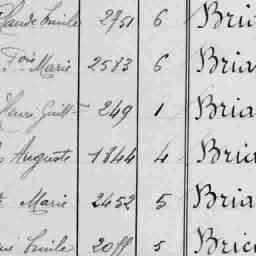 Claude Emile 2751 6 Bri
Fois Marie 2583 6 Bria
Henri Guill 249 1 Bria
Auguste 1844 4 Bria
Marie 2452 5 Bria
Emile 2088 5 Bric